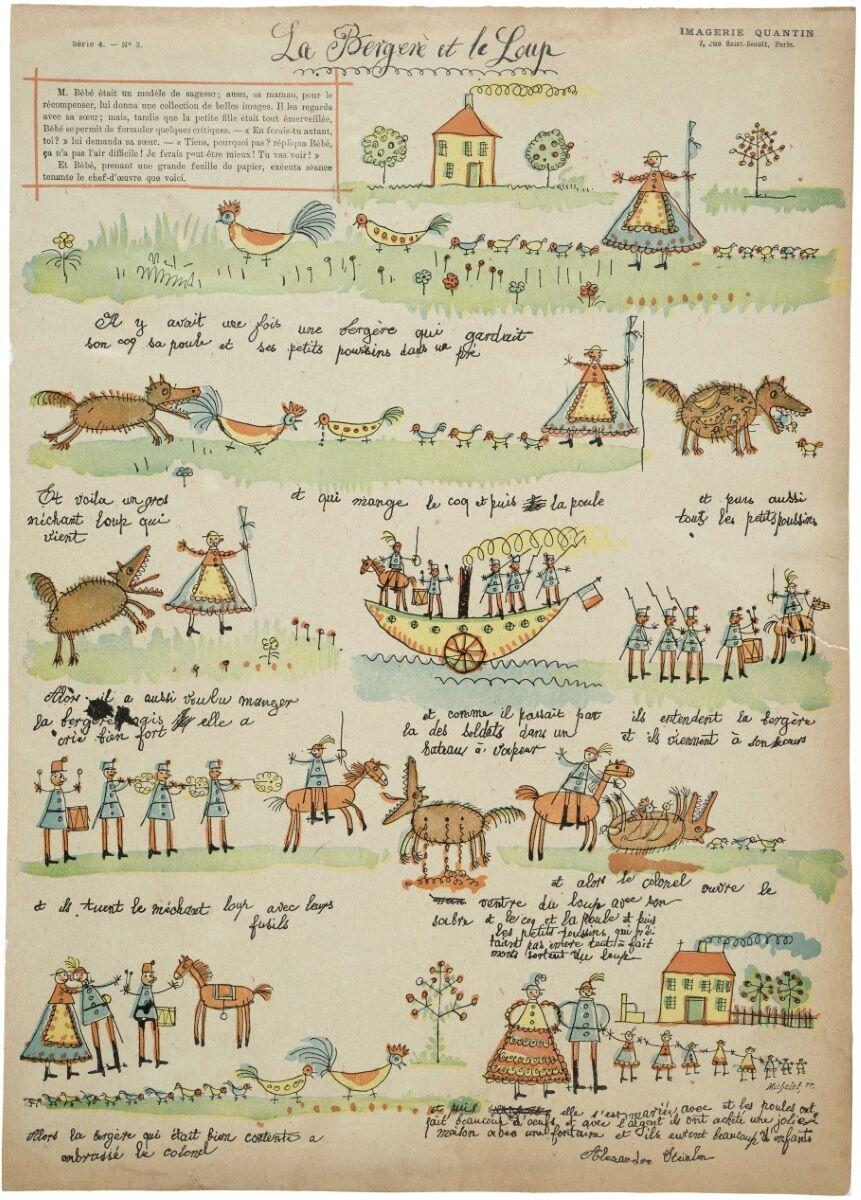 Série 4. — Nº 3.
La Bergere et le Loup
IMAGERIE QUANTIN
7, rue Saint-Benoît, Paris.
M. Bébé était un modèle de sagesse; aussi, sa maman, pour le
récompenser, lui donna une collection de belles images. Il les regarda
avec sa sœur; mais, tandis que la petite fille était tout émerveillée,
Bébé se permit de formuler quelques critiques. — « En ferais-tu autant,
toi? » lui demanda sa sœur. — « Tiens, pourquoi pas? répliqua Bébé,
ça n'a pas l'air difficile! Je ferais peut-être mieux! Tu vas voir! »
Et Bébé, prenant une grande feuille de papier, exécuta séance
tenante le chef-d'œuvre que voici.
Il y avait une fois une bergère qui gardait
son coq sa poule et ses petits poussins dans un pré
Et voila un gros
méchant loup qui
vient
et qui mange le coq et puis la poule
et puis aussi
tous les petits poussins
Alors il a aussi voulu manger
la bergère mais elle a
crié bien fort
et comme il passait par
la des soldats dans un
bateau à vapeur
ils entendent la bergère
et ils viennent à son secours
et ils tuent le méchant loup avec leurs
fusils
et alors le colonel ouvre le
ventre du loup avec son
sabre et le coq et la poule et puis
les petits poussins qui n'é-
taient pas encore tout à fait
morts sortent du loup
Alors la bergère qui était bien contente a
embrassé le colonel
et puis elle s'est mariée avec et les poules ont
fait beaucoup d'oeufs et avec l'argent ils ont acheté une jolie
maison avec une fontaine et ils eurent beaucoup d'enfants
Michelet sc
Alexandre Steinlen